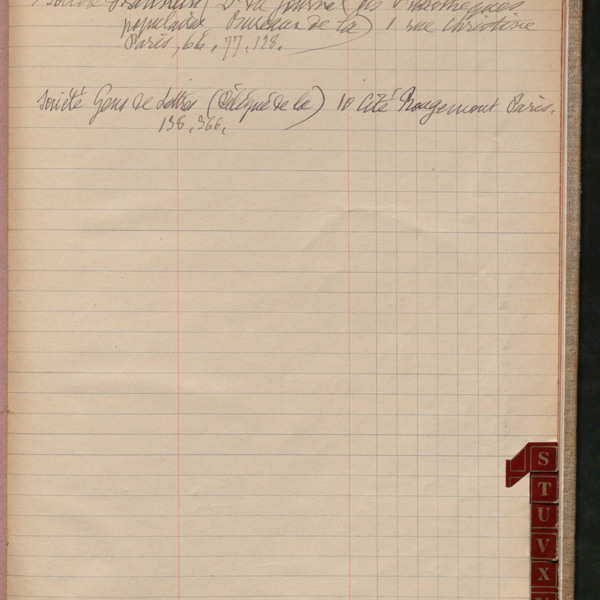 Société Franklin (Dr du journal des Bibliothèques
populaires Bureaux de la) 1 rue Christine
Paris, 66, 77, 128.
Société Gens de Lettres (Délégué de la) 10 Cité Rougemont Paris.
138, 366,
S
T
U
V
X